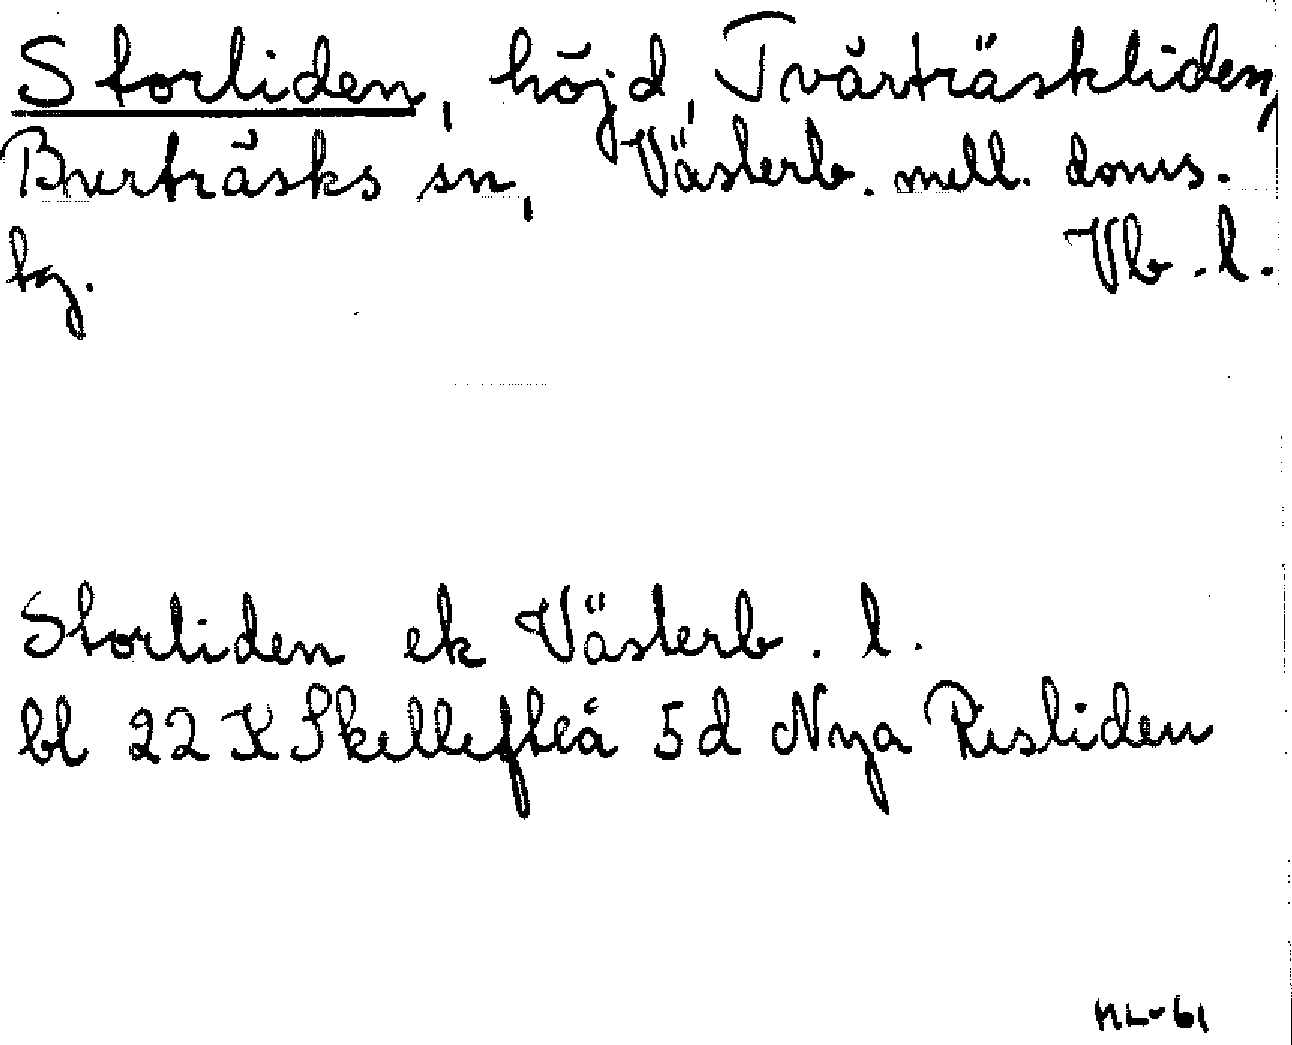 Storliden, höjd, Tvärträskliden,
Burträsks sn, Västerb. mell. doms.
tg. Vb. l.
Storliden ek Västerb. l.
bl 22 K Skellefteå 5d Nya Risliden
ML-61